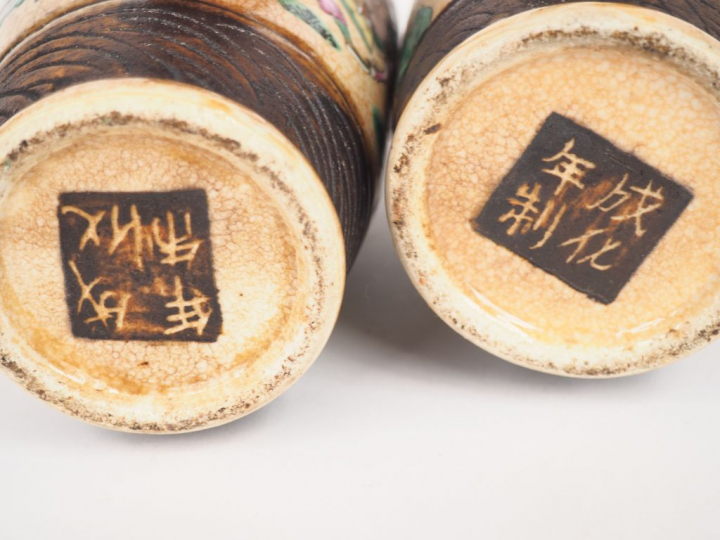 成化
年制
成化
年制